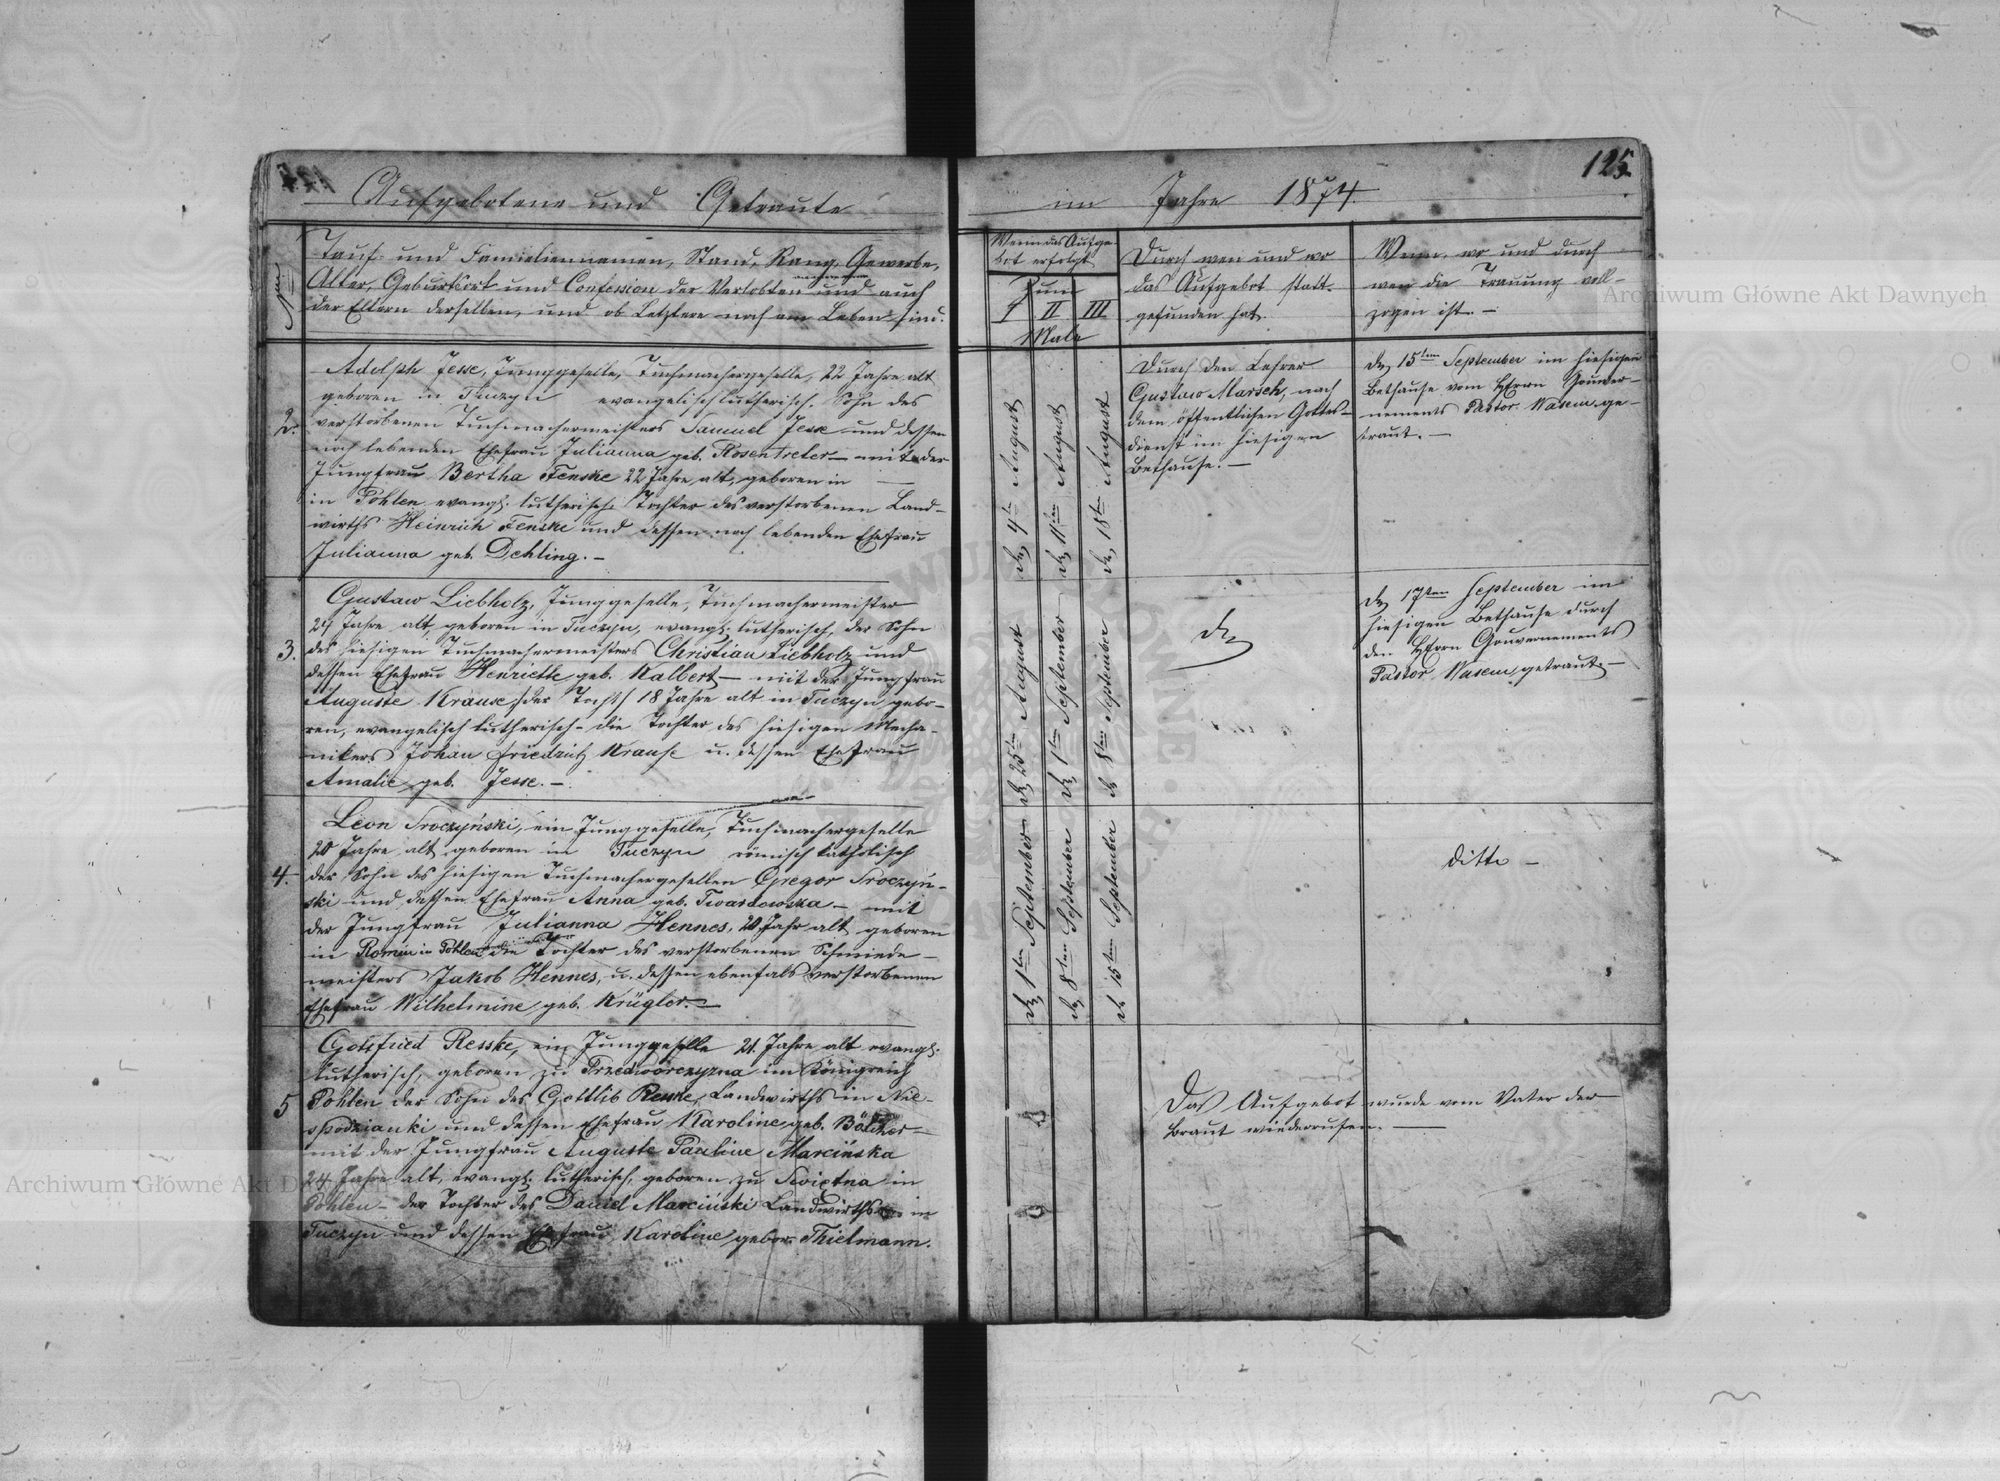 125
Aufgebotene und Getraute
im Jahre 1874.
Tauf- und Familiennamen, Stand, Rang, Gewerbe,
Alter, Geburtsort und Confession der Verlobten und auch
der Eltern derselben, und ob Letztere noch am Leben sind.
Wenn das Aufge-
bot erfolgt
Zum
I II III
Male
Durch wen und wo
das Aufgebot statt-
gefunden hat.
Wenn, wo und durch
wen die Trauung voll-
zogen ist. —
2.
Adolph Jesse, Junggeselle, Tuchmachergeselle, 22 Jahre alt
geboren in Tuczyn evangelisch lutherisch. Sohn des
verstorbenen Tuchmachermeisters Samuel Jesse und dessen
noch lebenden Ehefrau Julianna geb. Rosentreter — mit der
Jungfrau Bertha Fenske 22 Jahre alt, geboren in —
in Pohlen, evangl. lutherisch Tochter des verstorbenen Land-
wirths Heinrich Fenske und dessen noch lebenden Ehefrau
Julianna geb. Dehling. —
den 4ten August
den 11ten August
den 18ten August
Durch den Lehrer
Gustaw Marsch, nach
dem öffentlichen Gottes-
dienst im hiesigen
Bethause. —
den 15ten September im hiesigen
Bethause vom Herrn Gouver-
nements Pastor Wasem ge-
traut. —
3.
Gustaw Liebholz, Junggeselle, Tuchmachermeister
24 Jahre alt, geboren in Tuczyn, evangl. lutherisch, der Sohn
des hiesigen Tuchmachermeisters Christian Liebholz und
dessen Ehefrau Henriette geb. Kalbert — mit der Jungfrau
Auguste Krause, /der Tocht/ 18 Jahre alt in Tuczyn gebo-
ren, evangelisch lutherisch — die Tochter des hiesigen Mecha-
nikers Johan Friedrich Krause u. dessen Ehefrau
Amalie, geb. Jesse. —
den 25ten August
den 1ten September
den 8ten September
den 17ten September im
hiesigen Bethause durch
den Herrn Gouvernements
Pastor Wasem, getraut. —
4.
Leon Sroczyński, ein Junggeselle, Tuchmachergeselle
20 Jahre alt, geboren in Tuczyn römisch katholisch
der Sohn des hiesigen Tuchmachergesellen Gregor Sroczyń-
ski und dessen Ehefrau Anna geb. Twardowska — mit
der Jungfrau Julianna Hennes, 20 Jahr alt geboren
in in Pohlen die Tochter des verstorbenen Schmiede-
meisters Jakob Hennes, u. dessen ebenfals verstorbenen
Ehefrau Wilhelmine, geb. Krügler. —
den 1ten September
den 8ten September
den 15ten September
ditto —
5
Gottfried Resske, ein Junggeselle 21 Jahre alt evangl.
lutherisch, geboren zu Przedworczyzna im Königreich
Pohlen der Sohn des Gottlib Reske, Landwirths in Nie-
spodzianki und dessen Ehefrau Karoline geb. Böttcher
mit der Jungfrau Auguste Pauline Marcińska
24 Jahre alt, evangl. lutherisch, geboren zu Swietna in
Pohlen — der Tochter des Daniel Marciński Landwirths in
Tuczyn und dessen Ehefrau Karoline gebor. Thielmann.
Das Aufgebot wurde vom Vater der
Braut wiederrufen. —
Archiwum Główne Akt Dawnych
Archiwum Główne Akt Dawnych